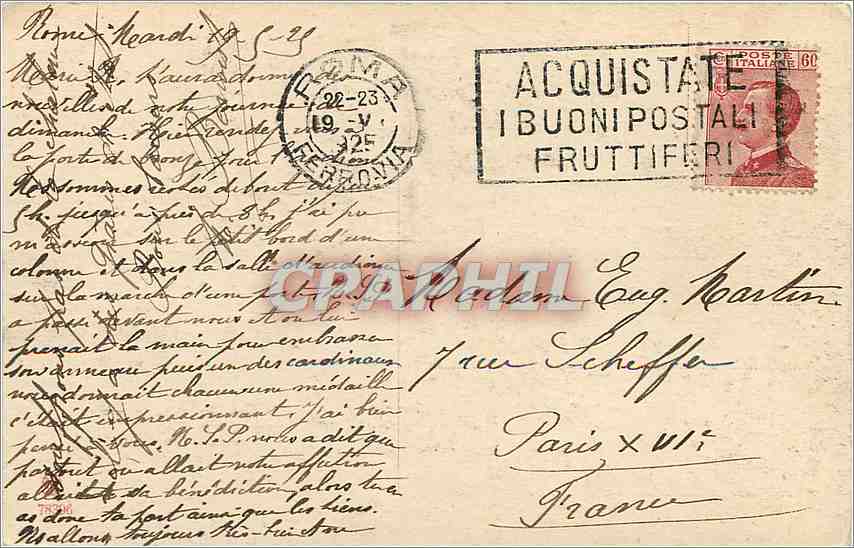 Rome Mardi 19-5-25
Marie A. Laura donné des
nouvelles de notre journée de
dimanche. Hier rendez-vous
la porte de bronze pour l'
Nous sommes restés debout de
5h. jusqu'à près de 8h. j'ai pu
m'asseoir sur le petit bord d'une
colonne et dans la salle d'audience
sur la marche d'une porte. Le S.P.
a passé devant nous et on lui
prenait la main pour embrasser
son anneau puis un des cardinaux
nous donnait chacun une médaille
c'était impressionnant. J'ai bien
pensé à vous. N.S.P. nous a dit que
partout où allait notre affection
allait sa bénédiction, alors tu en
as donc ta part ainsi que les tiens.
Nous allons toujours très bien
ROMA
22-23
19 V
925
FERROVIA
ACQUISTATE
I BUONI POSTALI
FRUTTIFERI
POSTE
ITALIANE
60
Madame Eug. Martin
7 rue Scheffer
Paris XVIe
France
78396
CPAPHIL